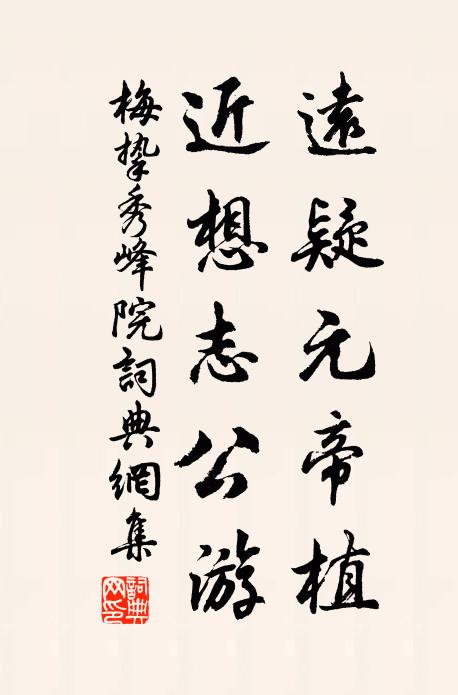 遠疑元帝植
近想志公游
梅摯秀峰院詞典網集
詞典網印